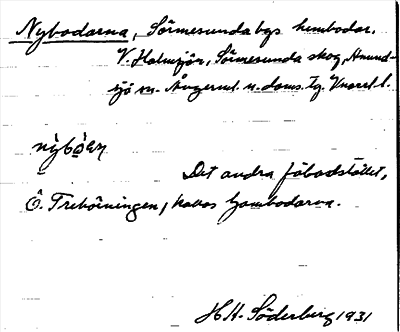 Nybodarna, Sörmesunda bys hembodar.
V. Holmsjön, Sörmesunda skog, Anund-
sjö sn. Ångerml. n. doms.
nybóan
Det andra fäbodstället,
Ö. Treköiningen, kallas Gambodarna.
H. H. Söderberg 1931